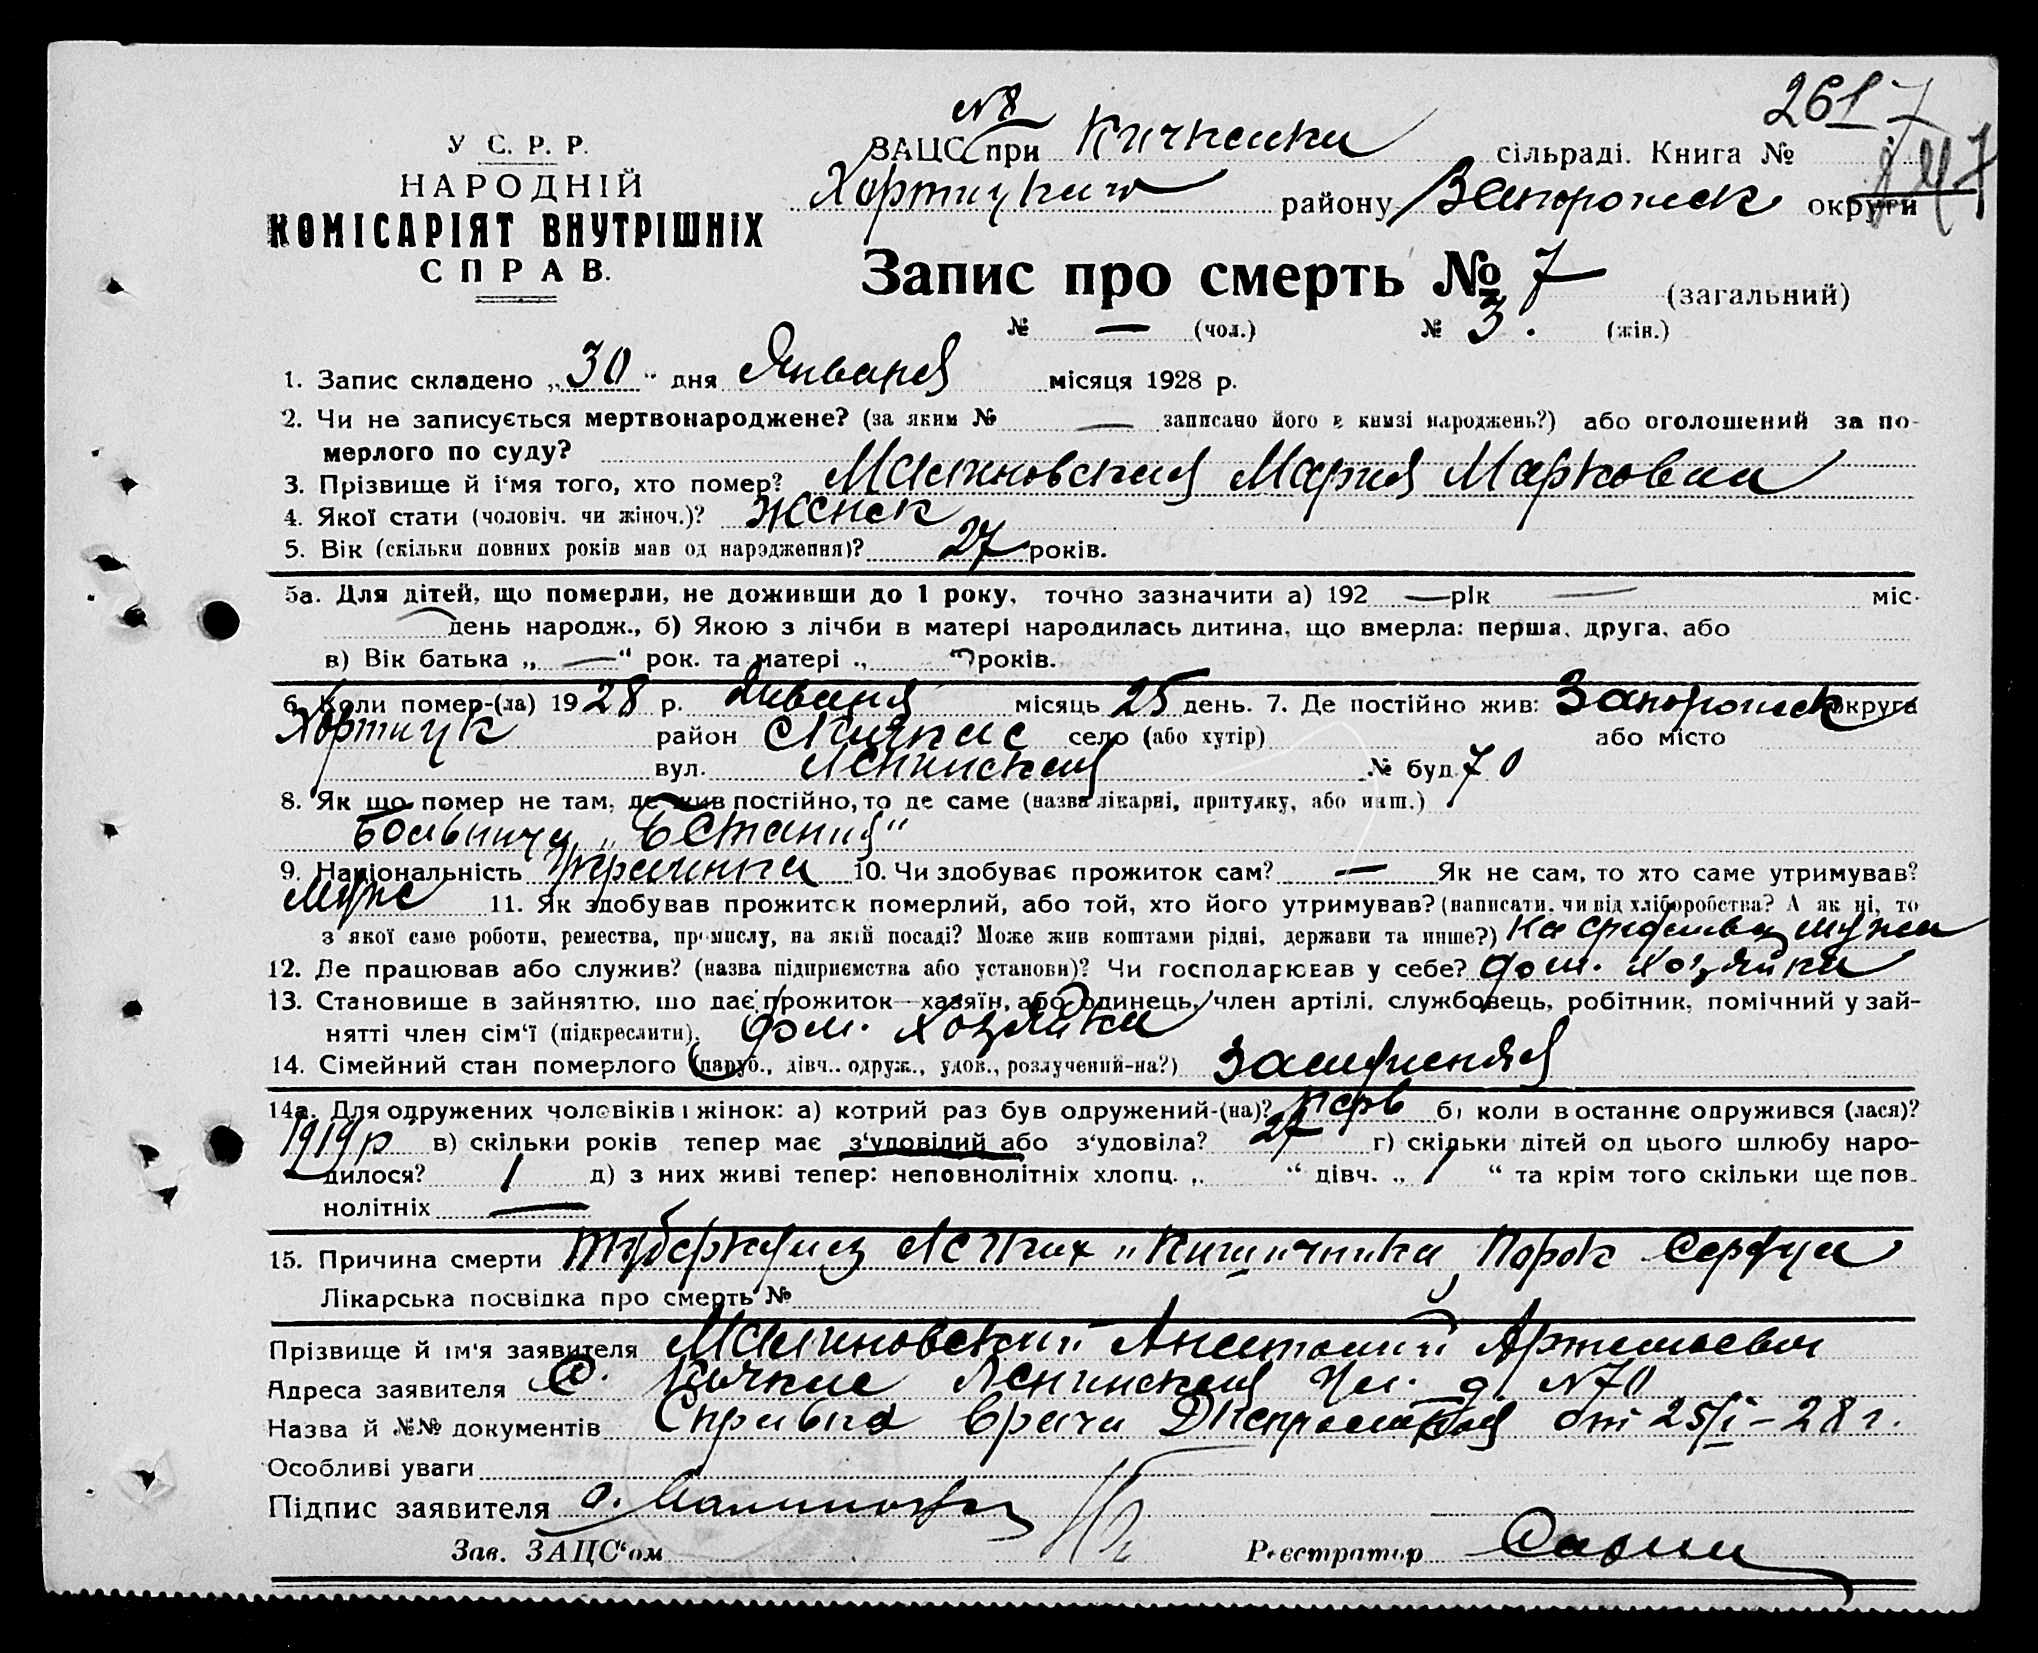 261 7
№8
У. С. Р. Р.
НАРОДНІЙ
КОМІСАРІЯТ ВНУТРІШНІХ
СПРАВ.
ЗАЦС при Кичкаски сільраді. Книга №
Хортицким району Запорожск округи
Запис про смерть № 7 (загальний)
№ — (чол.) № 3. (жін.)
1. Запис складено „30“ дня Января місяця 1928 р.
2. Чи не записується мертвонароджене? (за яким № — записано його в книзі народжень?) або оголошений за по-
мерлого по суду?
3. Прізвище й і'мя того, хто помер? Малиновская Мария Марковна
4. Якої стати (чоловіч. чи жіноч.)? Женск
5. Вік (скільки повних років мав од народження)? 27 років.
5а. Для дітей, що померли, не доживши до 1 року, точно зазначити а) 192 — рік — міс.
день народж., б) Якою з лічби в матері народилась дитина, що вмерла: перша, друга, або
в) Вік батька „ — “ рок. та матері „ “ років.
6. Коли помер-(ла) 1928 р. Января місяць 25 день. 7. Де постійно жив: Запорожск округа
Хортицк район Кичкас село (або хутір) або місто
вул. Ленинская № буд. 70
8. Як що помер не там, де жив постійно, то де саме (назва лікарні, притулку, або инш.)
Больница „Бетания“
9. Національність Украинка 10. Чи здобуває прожиток сам? — Як не сам, то хто саме утримував?
муж 11. Як здобував прожиток померлий, або той, хто його утримував? (написати, чи від хліборобства? А як ні, то
з якої саме роботи, ремества, промислу, на якій посаді? Може жив коштами рідні, держави та инше?) на средства мужа
12. Де працював або служив? (назва підприємства або установи)? Чи господарював у себе? дом. хозяйка
13. Становище в зайняттю, що дає прожиток—хазяїн, або одинець, член артілі, службовець, робітник, помічний у зай-
нятті член сім'ї (підкреслити). дом. хозяйка
14. Сімейний стан померлого (паруб., дівч.. одруж., удов., розлучений-на?) Замужняя
14а. Для одружених чоловіків і жінок: а) котрий раз був одружений-(на)? перв б) коли в останнє одружився (лася)?
1919р в) скільки років тепер має з'удовілий або з'удовіла? 27 г) скільки дітей од цього шлюбу наро-
дилося? 1 д) з них живі тепер: неповнолітніх хлопц. „ “ дівч. „ 1 “ та крім того скільки ще пов-
нолітніх —
15. Причина смерти Туберкулиз Легких и Кишичника, Порок Сердца
Лікарська посвідка про смерть №
Прізвище й ім'я заявителя Малиновский Анатолий Артемьевич
Адреса заявителя С. Кичкас Ленинская Ул. д. №70
Назва й №№ документів Справка врача Днепростроя от 25/I – 28 г.
Особливі уваги
Підпис заявителя
Зав. ЗАЦС'ом Реєстратор